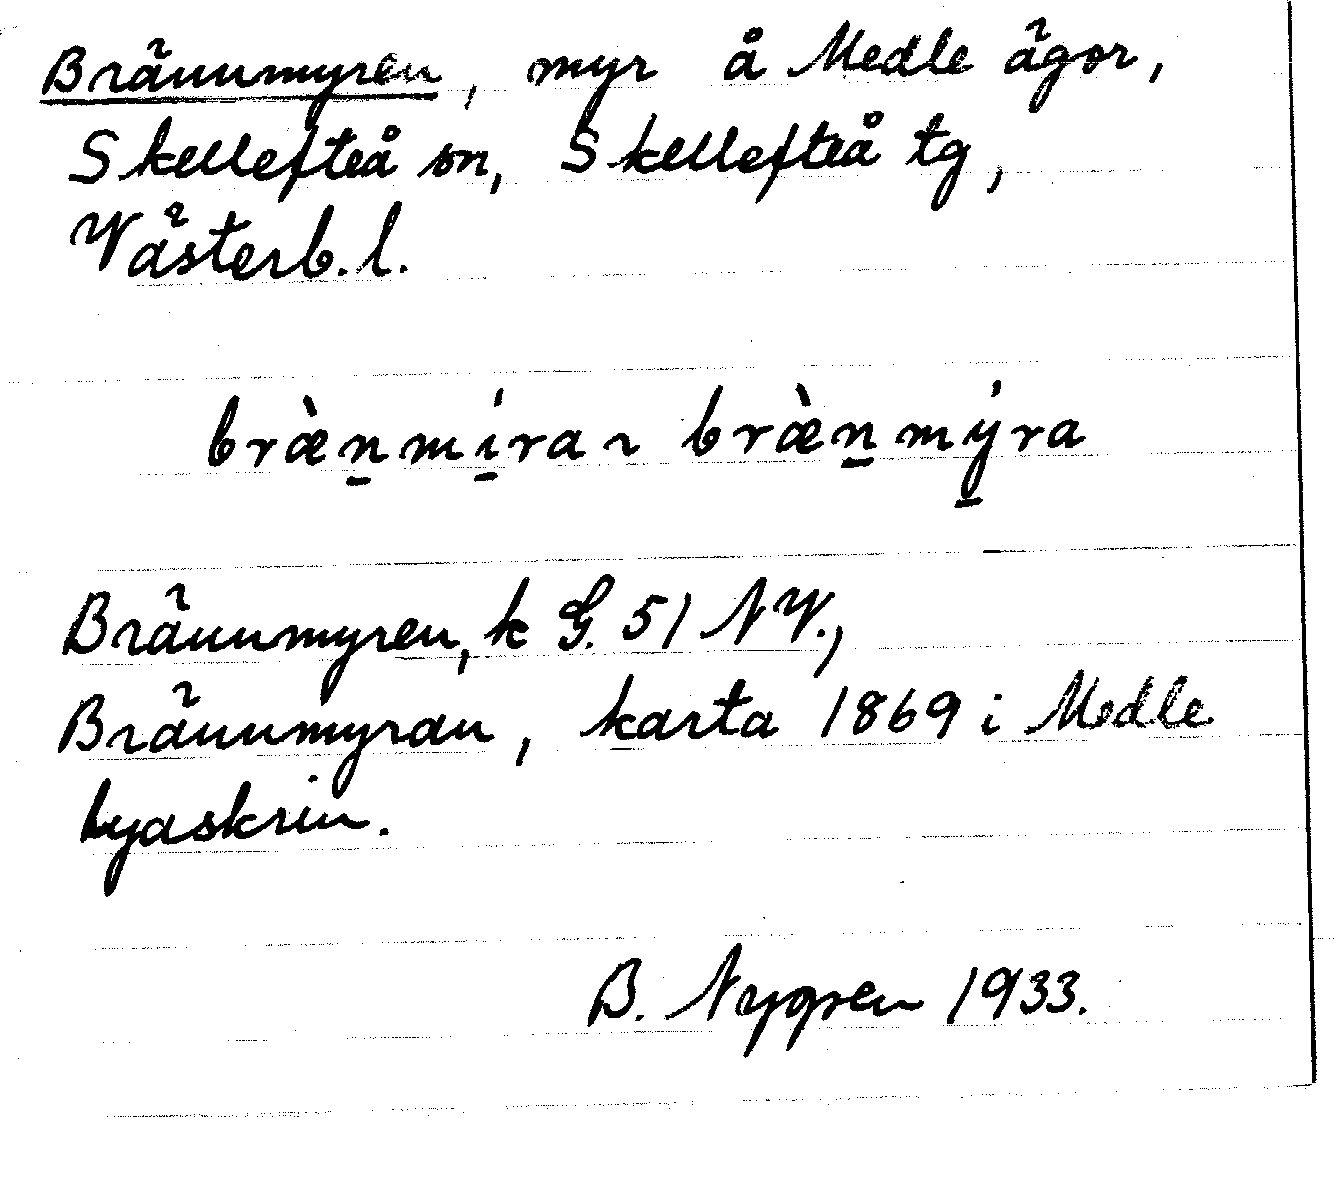 Brännmyren, myr å Medle ägor,
Skellefteå sn, Skellefteå tg,
Västerb. l.
bræ̀n̲mí̲ra ~ bræ̀n̲mý̲ra
Brännmyren, k G. 51 NV.,
Brännmyran, karta 1869 i Medle
byaskrin.
B. Nygren 1933.